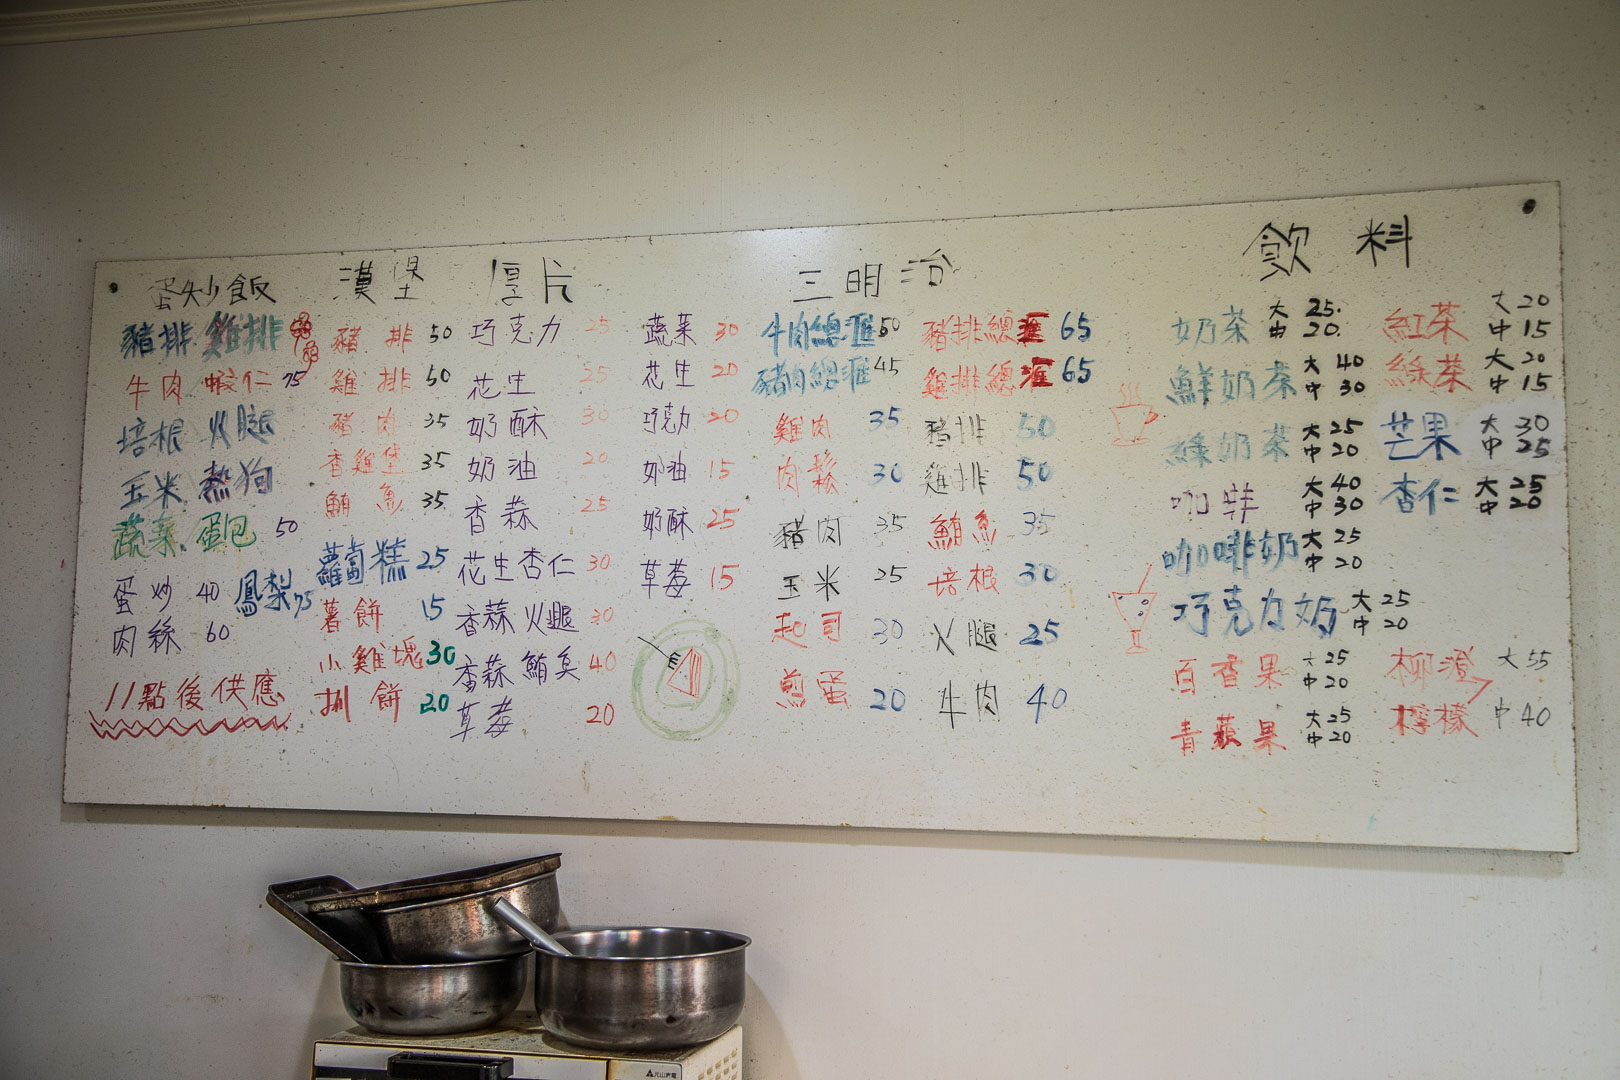 蛋炒飯
豬排 雞排
牛肉 蝦仁 75
培根 火腿
玉米 熱狗
蔬菜 蛋包 50
蛋炒 40 鳳梨 75
肉絲 60
11點後供應
漢堡
豬排 50
雞排 50
豬肉 35
香雞堡 35
鮪魚 35
蘿蔔糕 25
薯餅 15
小雞塊 30
捌餅 20
厚片
巧克力 25
花生 25
奶酥 30
奶油 20
香蒜 25
花生杏仁 30
香蒜火腿 30
香蒜鮪魚 40
草莓 20
三明治
蔬菜 30
花生 20
巧克力 20
奶油 15
奶酥 25
草莓 15
牛肉總匯 50
豬肉總匯 45
雞肉 35
肉鬆 30
豬肉 35
玉米 25
起司 30
煎蛋 20
豬排總匯 65
雞排總匯 65
豬排 50
雞排 50
鮪魚 35
培根 30
火腿 25
牛肉 40
飲料
奶茶 大 25. 中 20.
鮮奶茶 大 40 中 30
綠奶茶 大 25 中 20
咖啡 大 40 中 30
咖啡奶 大 25 中 20
巧克力奶 大 25 中 20
百香果 大 25 中 20
青蘋果 大 25 中 20
紅茶 大 20 中 15
綠茶 大 20 中 15
芒果 大 30 中 25
杏仁 大 25 中 20
柳澄 大 55
檸檬 中 40
元山家電